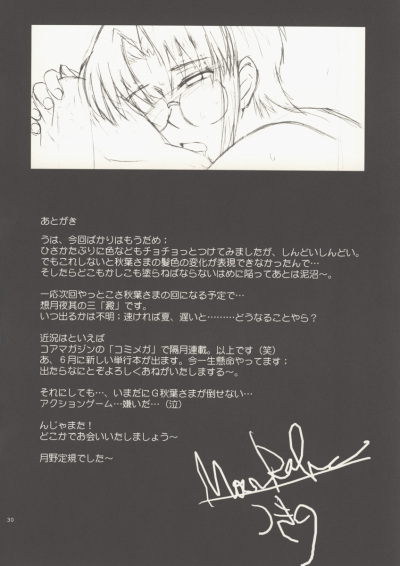 あとがき
うは、今回ばかりはもうだめ；
ひさかたぶりに色などもチョチョっとつけてみましたが、しんどいしんどい。
でもこれしないと秋葉さまの髪色の変化が表現できなかったんで…
そしたらどこもかしこも塗らねばならないはめに陥ってあとは泥沼～。
一応次回やっとこさ秋葉さまの回になる予定で…
想月夜其の三「澱」です。
いつ出るかは不明；速ければ夏、遅いと…‥‥どうなることやら？
近況はといえば
コアマガジンの「コミメガ」で隔月連載。以上です（笑）
あ、６月に新しい単行本が出ます。今一生懸命やってます；
出たらなにとぞよろしくおねがいたしまする～。
それにしても…、いまだにＧ秋葉さまが倒せない…
アクションゲーム…嫌いだ…（泣）
んじゃまた！
どこかでお会いいたしましょう～
月野定規でした～
30